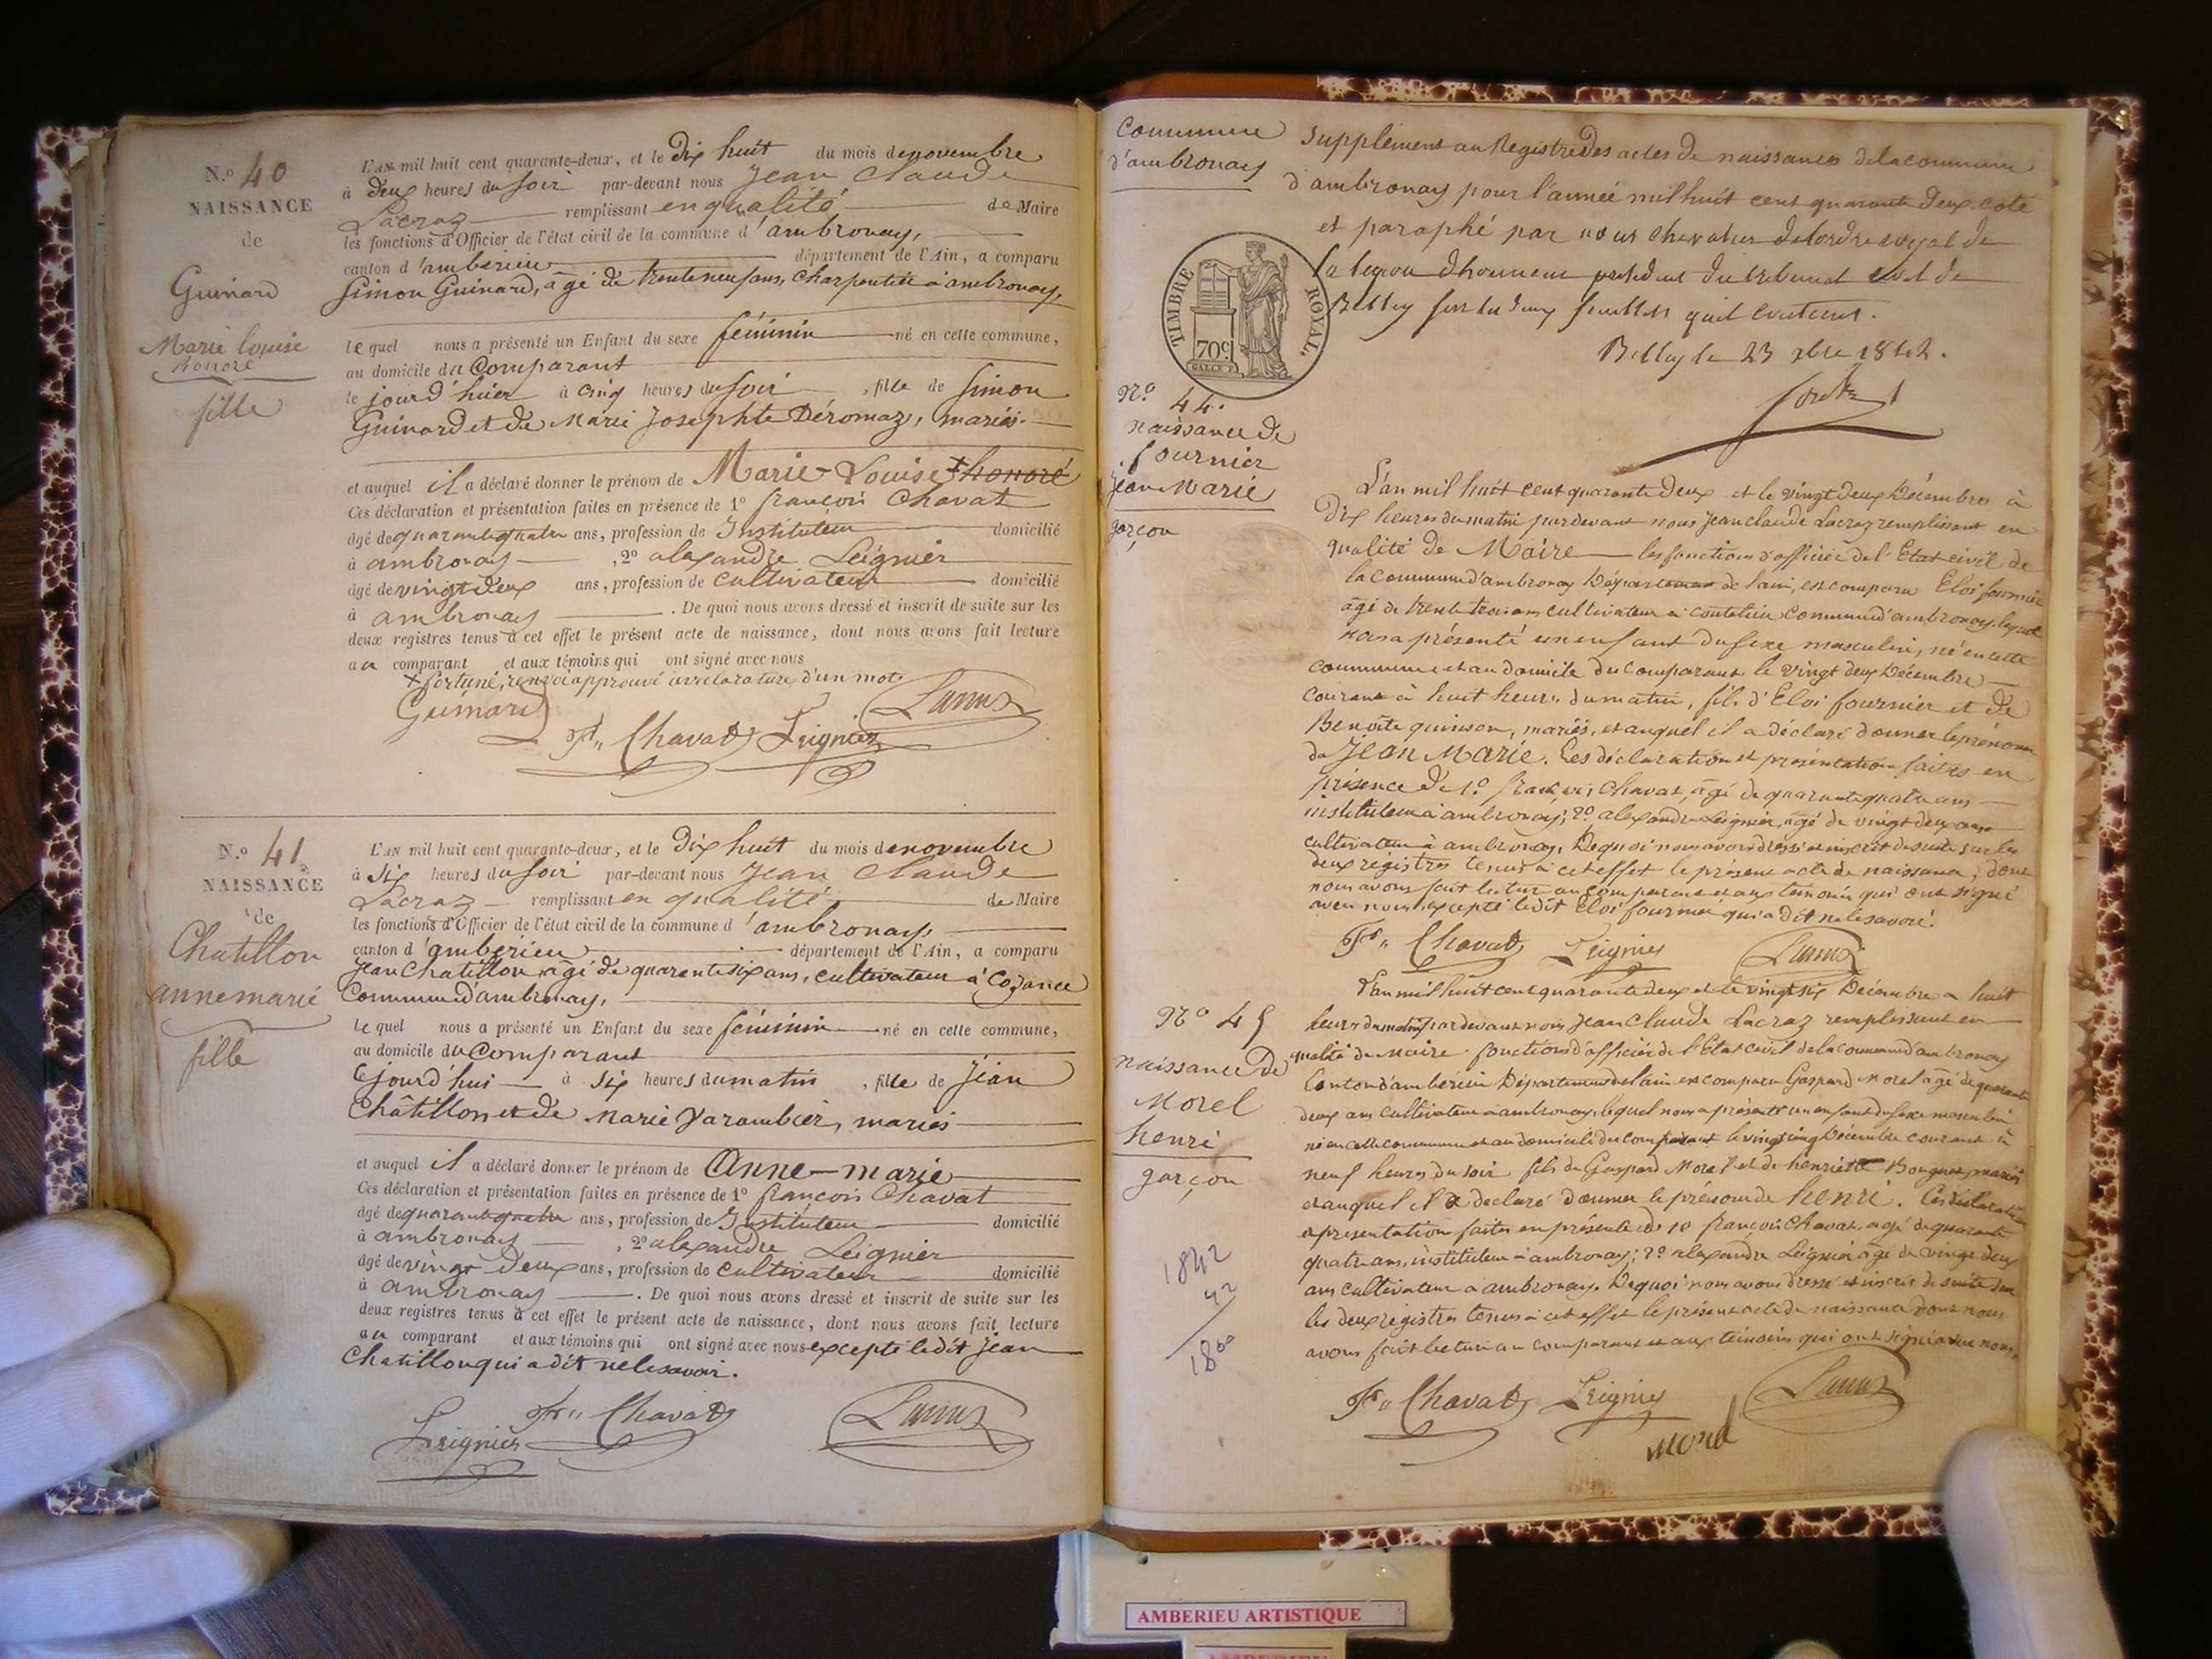 N.º 40
NAISSANCE
de
Guinard
Marie Louise
honoré
fille
L'AN mil huit cent quarante-deux, et le Dix huit du mois de novembre
à deux heures du soir par-devant nous Jean Claude
Lacroz remplissant en qualité de Maire
les fonctions d'Officier de l'état civil de la commune d'ambronay,
canton d'amberieu département de l'Ain, a comparu
Simon Guinard, âgé de trente neuf ans, Charpentier à ambronay,
lequel nous a présenté un Enfant du sexe féminin né en cette commune,
au domicile du Comparant
le jour d'hier à cinq heures du soir, fille de Simon
Guinard et de Marie Josephte Déromaz, mariés.
et auquel il a déclaré donner le prénom de Marie-Louise + honoré
Ces déclaration et présentation faites en présence de 1º françois Chavat
âgé de quarante quatre ans, profession de Instituteur domicilié
à ambronay, 2º alexandre Leignier
âgé de vingt deux ans, profession de cultivateur domicilié
à ambronay. De quoi nous avons dressé et inscrit de suite sur les
deux registres tenus à cet effet le présent acte de naissance, dont nous avons fait lecture
au comparant et aux témoins qui ont signé avec nous
+ fortuné, renvoi approuvé avec la rature d'un mot.
Guinard Lacroz
Fr. Chavat Leignier
N.º 41
NAISSANCE
de
Chatillon
anne marie
fille
L'AN mil huit cent quarante-deux, et le Dix huit du mois de novembre
à six heures du soir par-devant nous Jean Claude
Lacroz remplissant en qualité de Maire
les fonctions d'Officier de l'état civil de la commune d'ambronay,
canton d'amberieu département de l'Ain, a comparu
Jean Chatillon âgé de quarante six ans, cultivateur à Cozance
Commune d'ambronay,
lequel nous a présenté un Enfant du sexe féminin né en cette commune,
au domicile du Comparant
Cejourd'hui à six heures du matin, fille de Jean
Châtillon et de Marie Varambier, mariés
et auquel il a déclaré donner le prénom de Anne-marie
Ces déclaration et présentation faites en présence de 1º françois Chavat
âgé de quarante quatre ans, profession de Instituteur domicilié
à ambronay, 2º alexandre Leignier
âgé de vingt deux ans, profession de cultivateur domicilié
à ambronay. De quoi nous avons dressé et inscrit de suite sur les
deux registres tenus à cet effet le présent acte de naissance, dont nous avons fait lecture
au comparant et aux témoins qui ont signé avec nous excepté ledit Jean
Chatillon qui a dit ne le savoir.
Leignier Fr. Chavat Lacroz
Commune
d'ambronay
Supplément au Registre Des actes de naissances de la commune
d'ambronay pour l'année mil huit cent quarante Deux coté
et paraphé par nous chevalier de l'ordre royal de
la legion d'honneur président du tribunal civil de
Belley sur les deux feuillets qu'il contient.
Belley le 23 xbre 1842.
TIMBRE ROYAL.
70c
Nº 44.
naissance de
fournier
Jean Marie
garçon
L'an mil huit cent quarante Deux et le vingt Deux Décembre à
Dix heures du matin pardevant nous Jean claude Lacroz remplissant en
qualité de Maire les fonctions d'officier de l'Etat civil de
la commune d'ambronay Département de l'ain, est comparu Eloi fournier
âgé de trente trois ans cultivateur à commune d'ambronay, lequel
nous a présenté un enfant du sexe masculin, né en cette
commune et au domicile du comparant le vingt deux Décembre
courant à huit heures du matin, fils d'Eloi fournier et de
Benoîte quinson, mariés, et auquel il a déclaré donner le prénom
de Jean Marie. Ces déclaration et présentation faites en
présence de 1º françois Chavat, âgé de quarante quatre ans
instituteur à ambronay; 2º alexandre Leignier, âgé de vingt deux ans
cultivateur à ambronay. De quoi nous avons dressé et inscrit de suite sur les
deux registres tenus à cet effet le présent acte de naissance, dont
nous avons fait lecture au comparant et aux témoins qui ont signé
avec nous excepté ledit Eloi fournier qui a dit ne le savoir.
Fr. Chavat Leignier Lacroz
Nº 45
naissance de
Morel
henri
garçon
L'an mil huit cent quarante deux et le vingt six Décembre à huit
heures du matin pardevant nous Jean Claude Lacroz remplissant en
qualité de Maire fonctions d'officier de l'Etat civil de la commune d'ambronay
Canton d'amberieu Département de l'ain est comparu Gaspard Morel âgé de quarante
deux ans cultivateur à ambronay, lequel nous a présenté un enfant du sexe masculin
né en cette commune et au domicile du comparant le vingt cinq Décembre courant à
neuf heures du soir fils de Gaspard Morel et de henriette Bouguet, mariés
et auquel il a déclaré donner le prénom de henri. Ces déclaration
et présentation faites en présence de 1º françois Chavat âgé de quarante
quatre ans, instituteur à ambronay; 2º alexandre Leignier âgé de vingt deux
ans cultivateur à ambronay. De quoi nous avons dressé et inscrit de suite sur
les deux registres tenus à cet effet le présent acte de naissance dont nous
avons fait lecture au comparant et aux témoins qui ont signé avec nous.
1842
42
1800
Fr. Chavat Leignier Lacroz
Morel
AMBERIEU ARTISTIQUE